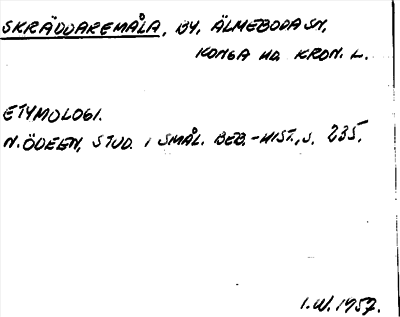 SKRÄDDAREMÅLA, BY, ÄLMEBODA SN,
KONGA HD. KRON. L.
ETYMOLOGI.
N. ÖDEEN, STUD. I SMÅL. BEB.-HIST., S. 235.
I.W. 1957.